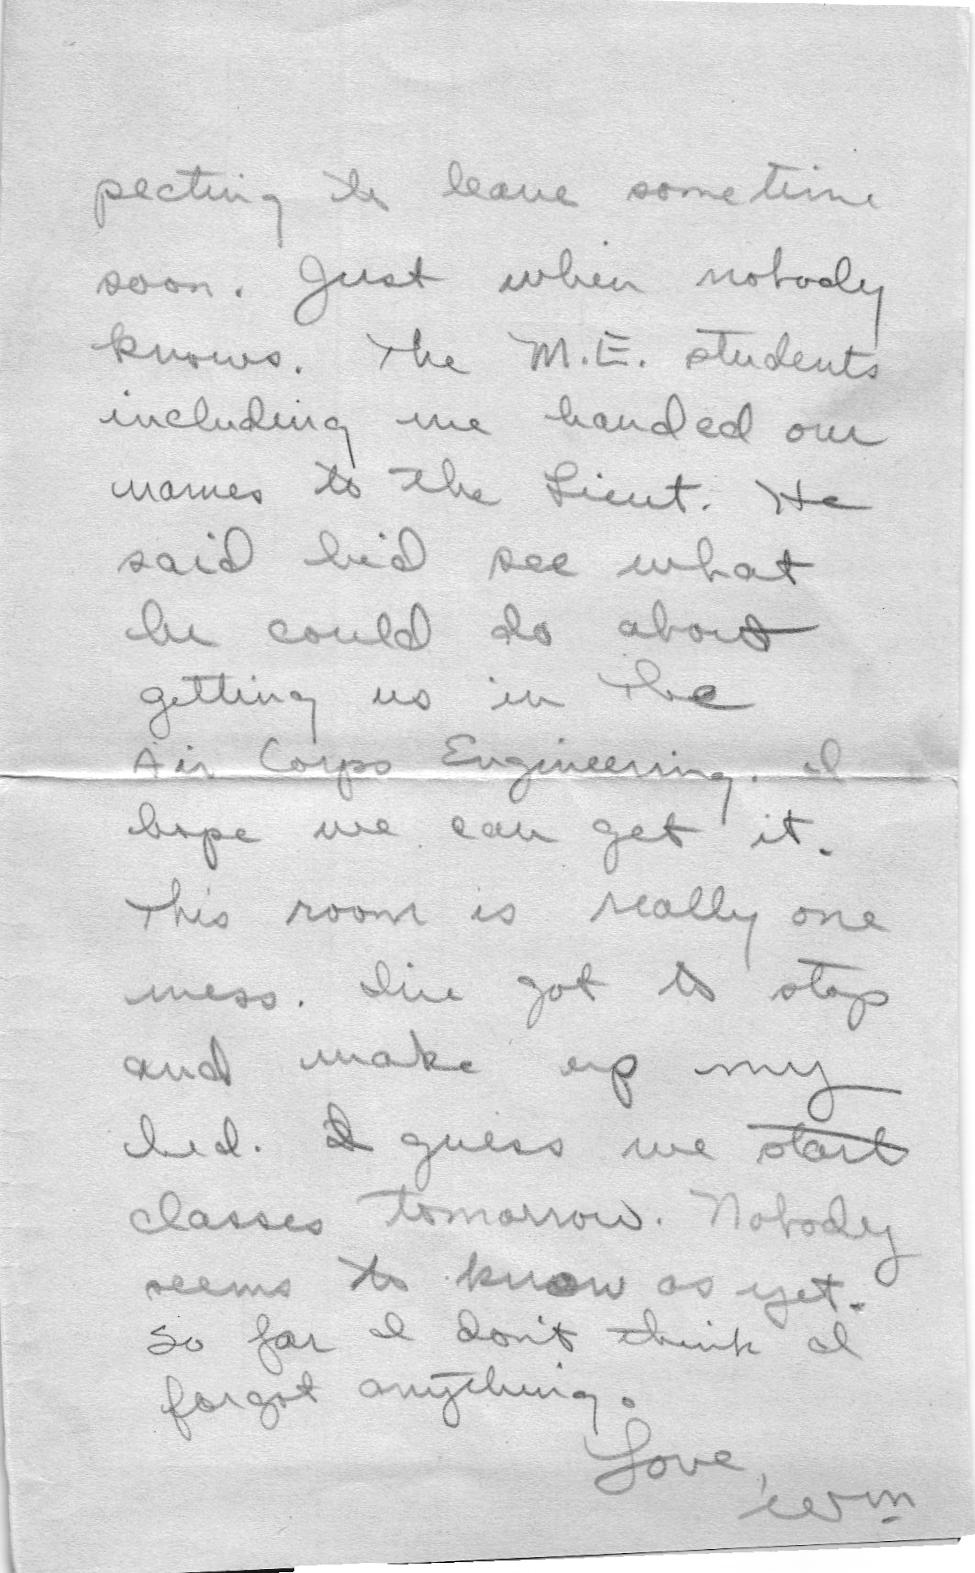 pecting to leave sometime
soon. Just when nobody
knows. The M.E. students
including me handed our
names to the Lieut. He
said he'd see what
he could do about
getting us in the
Air Corps Engineering. I
hope we can get it.
This room is really one
mess. I've got to stop
and make up my
bed. I guess we start
classes tomorrow. Nobody
seems to know as yet.
So far I don't think I
forgot anything.
Love,
Wm